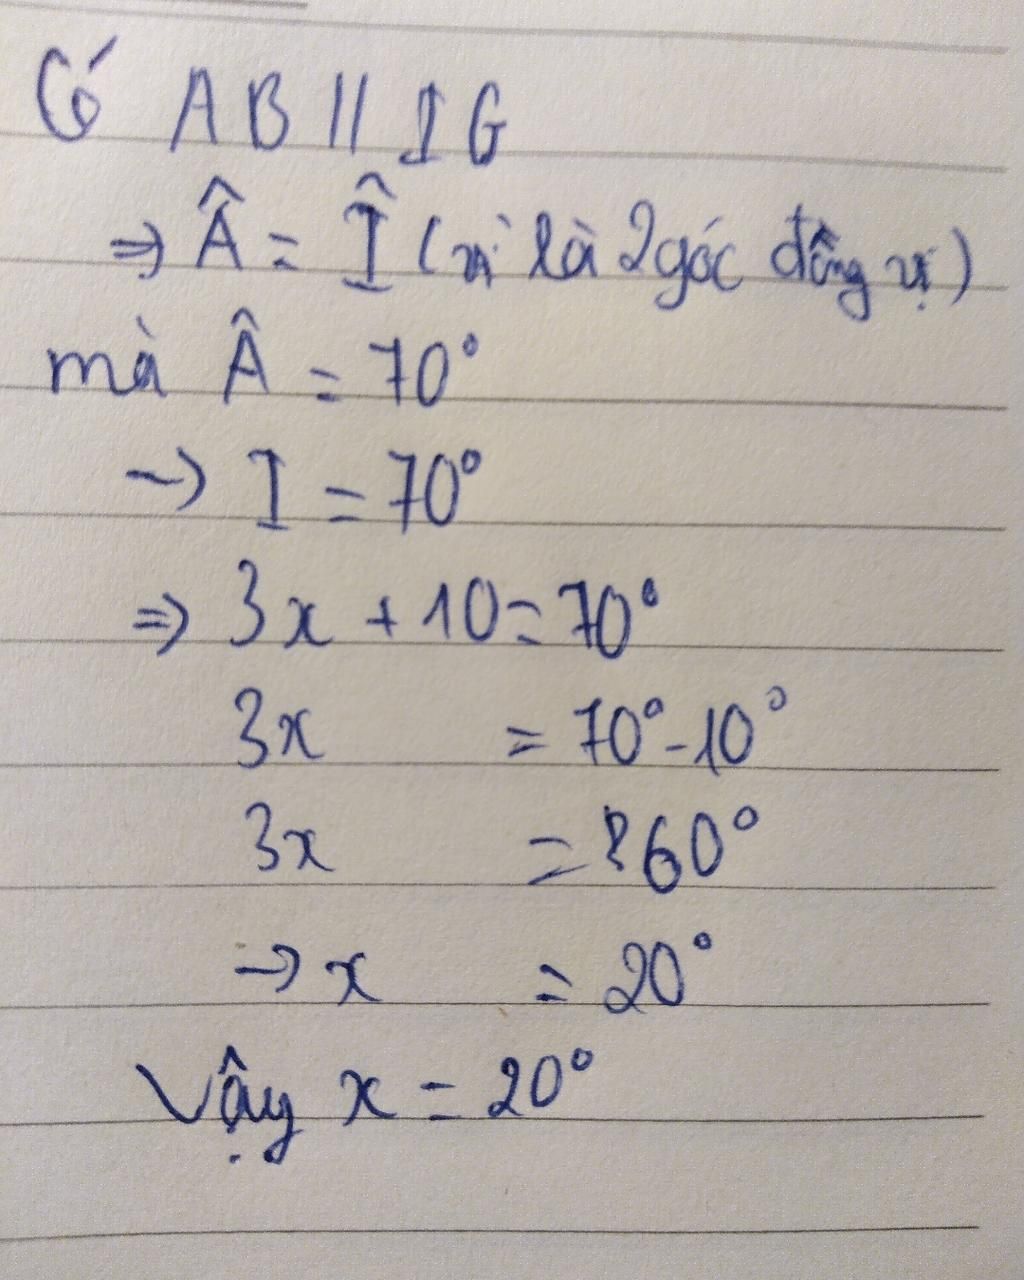 Có AB // IG
=> Â = Î (vì là 2 góc đồng vị)
mà Â = 70°
-> I = 70°
=> 3x + 10 = 70°
3x = 70° - 10°
3x = 60°
-> x = 20°
Vậy x = 20°